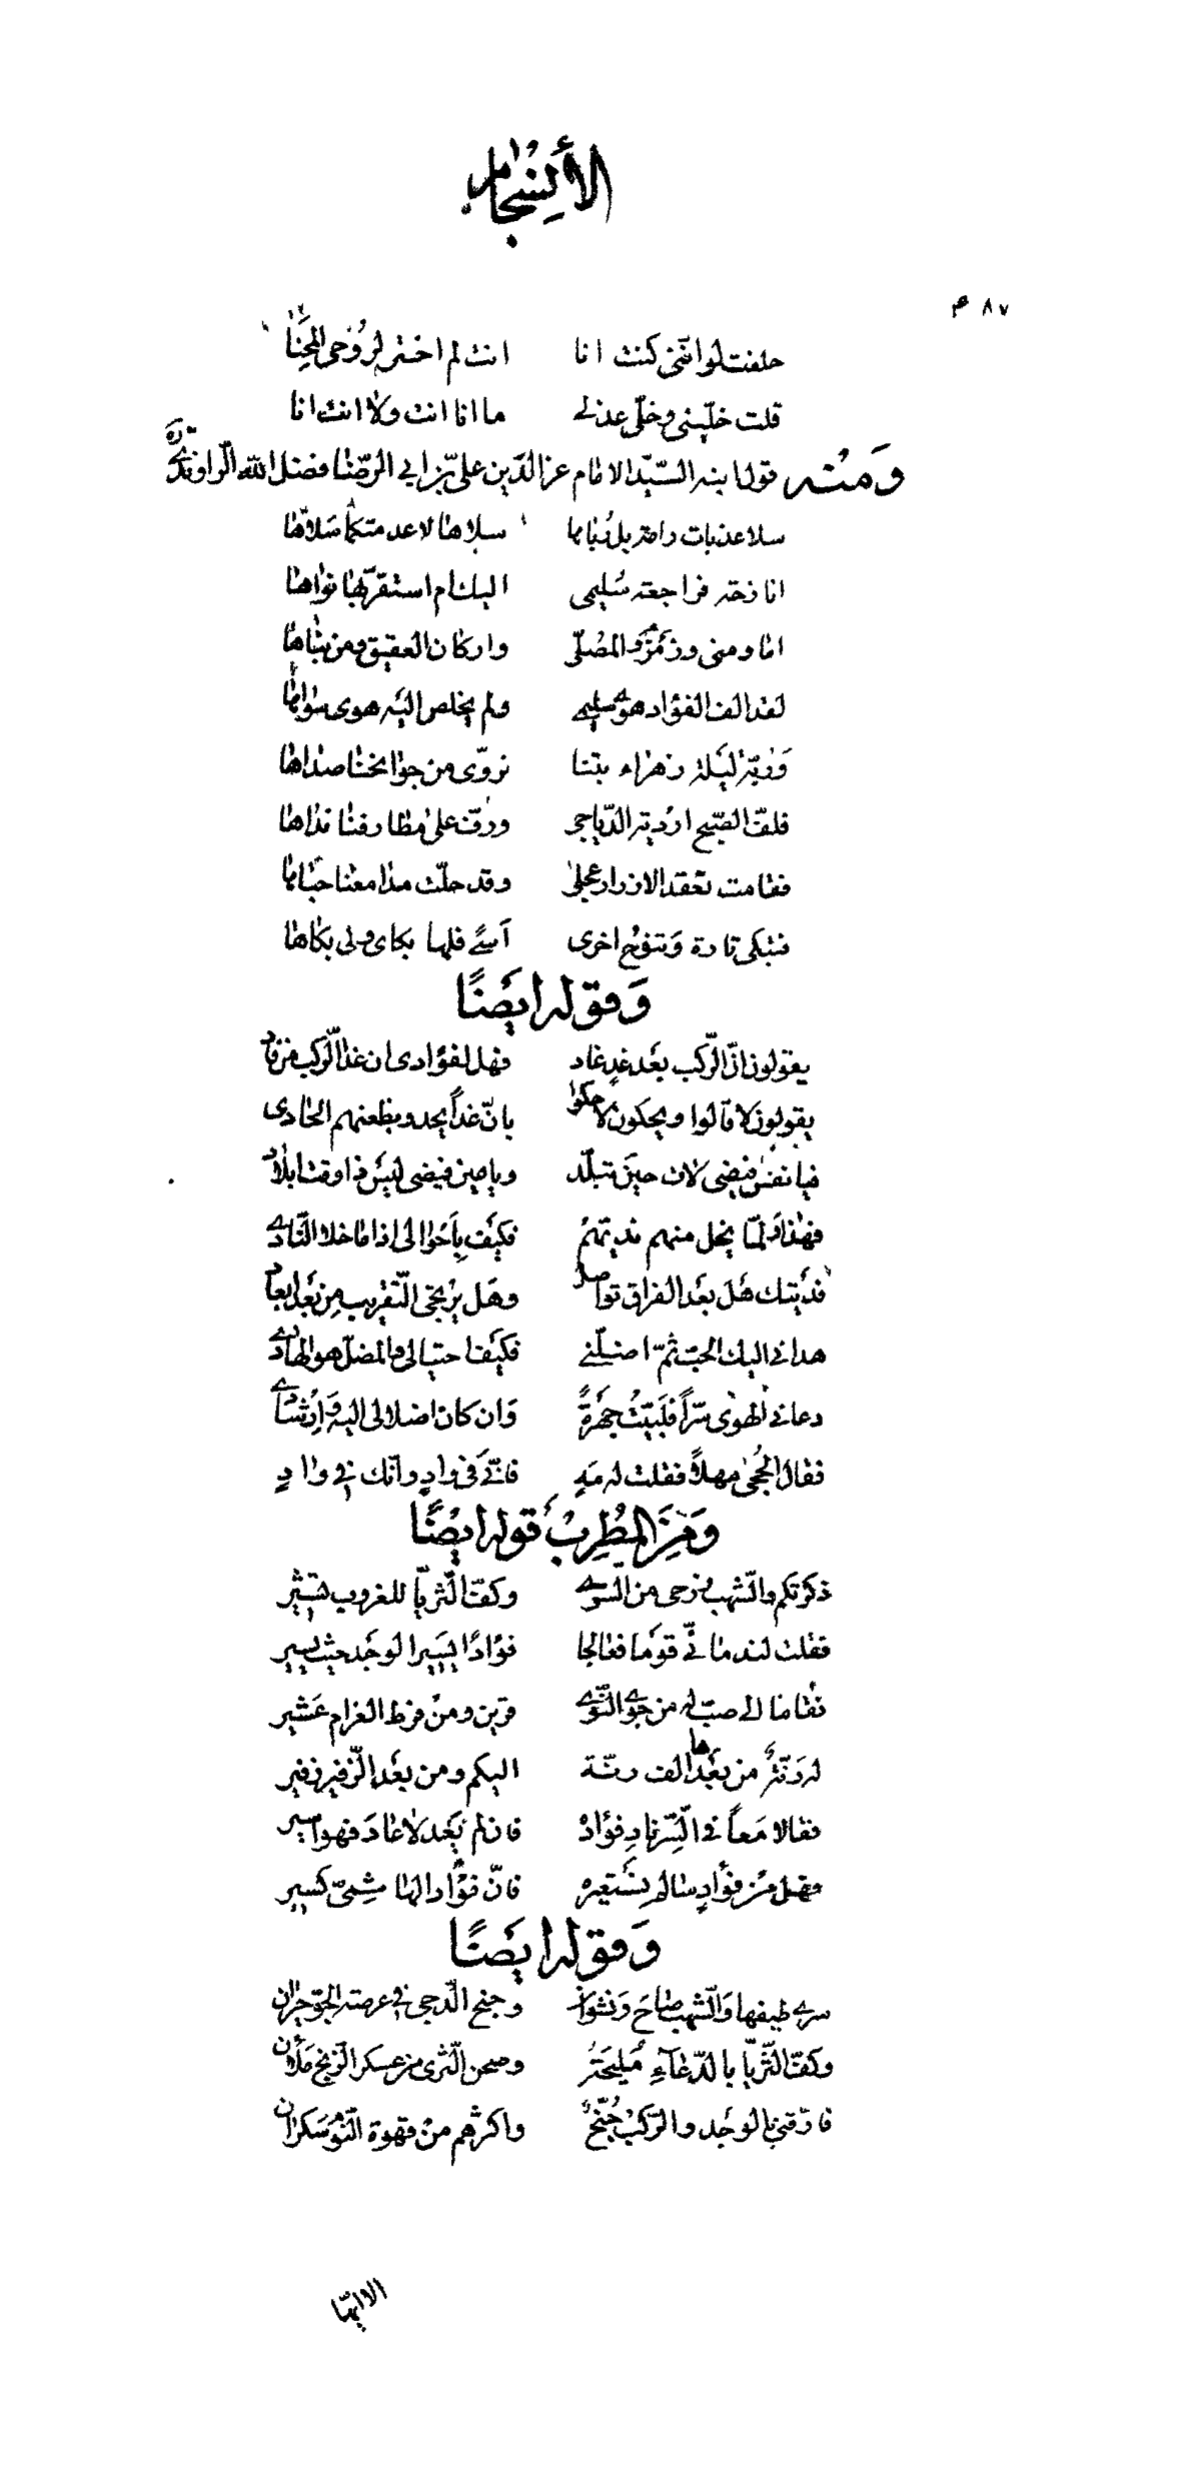 الأنسجام
٨٧ م
حلفت لو انّنى كنت انا    انت لم اختر لروحى المحنا
قلت خلّينى وخلّى عذلى    ما انا انت ولا انت انا
ومنه قول ابنه السيّد الامام عز الدّين على بن ابى الرضا فضل اللّه الرّاوندى ره
سلا عذبات رامة بل رباها    سلاها لا عدمتكما سلاها
انازحة فراجعة سليمى    اليك ام استقرّ بها نواها
اما ومنى وزمزم والمصلّى    واركان العقيق ومن بناها
لقد الف الفؤاد هوى سليمى    ولم يخلص اليه هوى سواها
وربّة ليلة زهراء بتنا    نروّى من جوانحنا صداها
فلقّ الصّبح اردية الدّياجى    ورقت على مطارفنا نداها
فقامت تعقد الازرار عجلى    وقد حلّت مدامعنا حباها
فتبكى تارة وتنوح اخرى    آسى فلها بكاى ولى بكاها
وقوله ايضًا
يقولون انّ الرّكب بعد غد غاد    فهل لفؤادى ان غدا الرّكب من فاد
يقولون لا قالوا ويحكون لا حكوا    بانّ غدًا يحدو بظعنهم الحادى
فيا نفس فيضى لات حين تبلّد    ويا عين فيضى ليس ذا وقت ابلاد
فهذا ولمّا يخل منهم نديّهم    فكيف باحوالى اذا ما خلا النّادى
فديتك هل بعد الفراق تواصل    وهل يرتجى التّقريب من بعد ابعاد
هدانى اليك الحبّ ثمّ اضلّنى    فكيف احتيالى والمضلّ هو الهادى
دعانى الهوى سرًّا فلبّيت جهرةً    وان كان اضلالى اليه وارشادى
فقال الحجى مهلاً فقلت له مه    فانّى فى وادٍ وانّك فى وادٍ
ومن المطرب قوله ايضًا
ذكرتكم والشّهب تزجى من السّرى    وكفّ الثّريّا للغروب تشير
فقلت لندمانىّ قوما فعالجا    فؤادًا يسير الوجد حيث يسير
فقاما الى صبّ له من جوى النّوى    قرين ومن فرط الغرام عشير
له رنّة من بعدها الف رنّة    اليكم ومن بعد الزّفير زفير
فقالا معًا فى السّرّ ناد فؤاده    فان لم يعد لا عاد فهو اسير
فهل من فؤادٍ سالم يستعيره    فانّ فؤاد الهاشمىّ كسير
وقوله ايضًا
سرى طيفها والشّهب صاح ونشوان    وجنح الدّجى فى عرصة الجوّ حيران
وكفّ الثّريّا بالدّعاء مليحة    وصحن الثّرى من عسكر الزّنج ملآن
فارّقنى بالوجد والرّكب جنّح    واكثرهم من قهوة النّوم سكران
الا ايّها